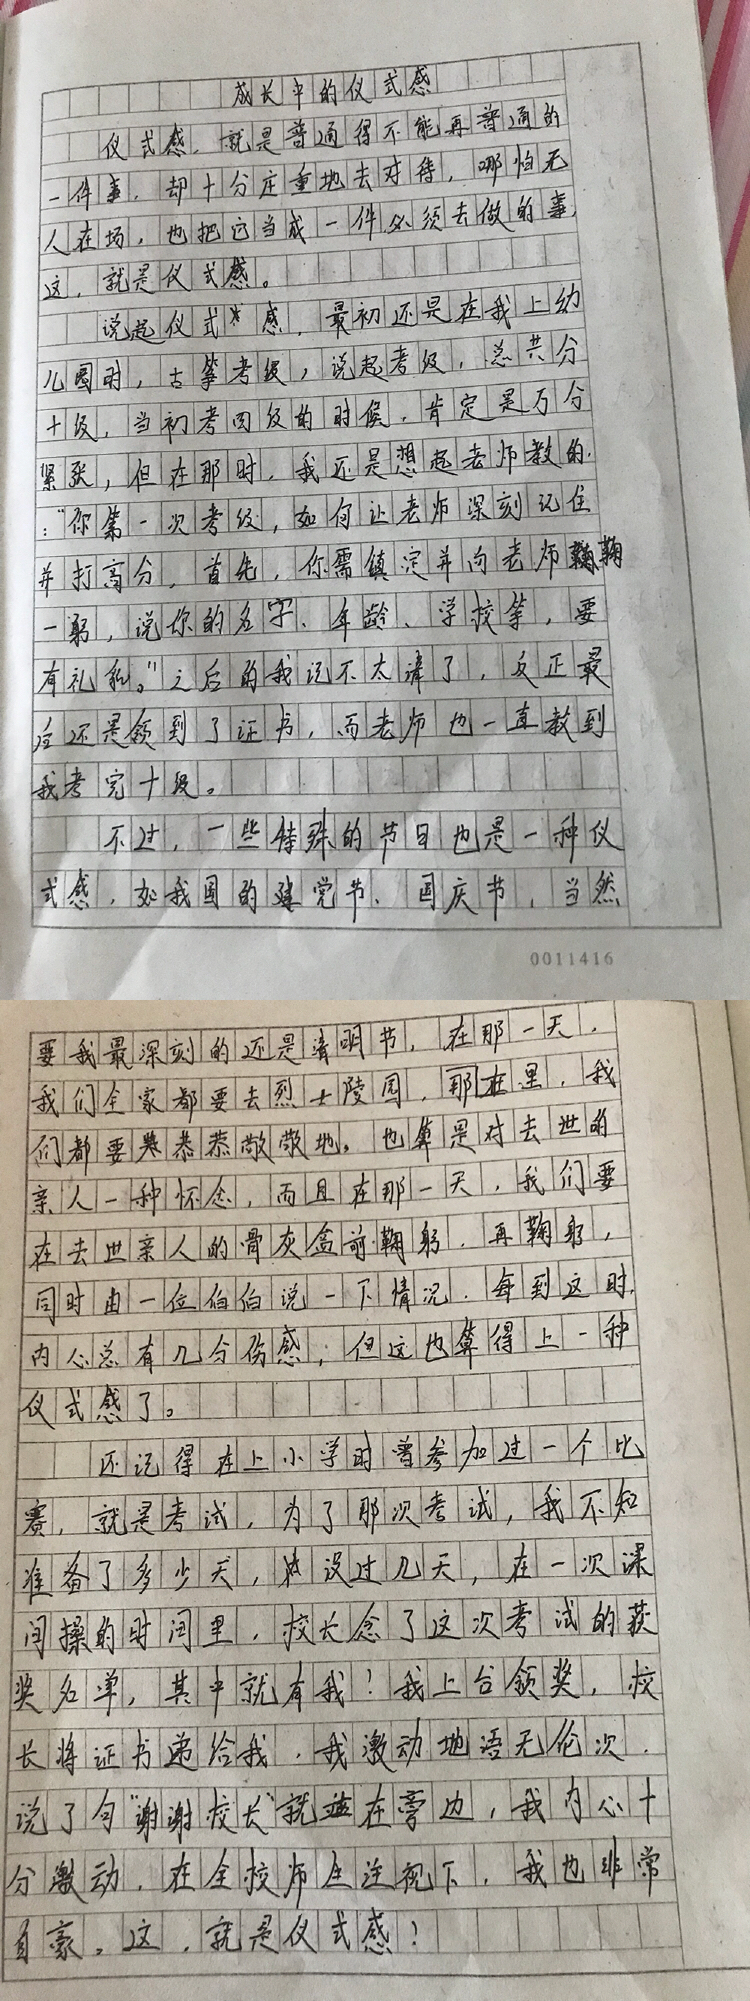 成长中的仪式感
仪式感，就是普通得不能再普通的
一件事，却十分庄重地去对待，哪怕无
人在场，也把它当成一件必须去做的事，
这，就是仪式感。
说起仪式感，最初还是在我上幼
儿园时，古筝考级，说起考级，总共分
十级，当初考四级的时候，肯定是万分
紧张，但在那时，我还是想起老师教的
：“你第一次考级，如何让老师深刻记住
并打高分，首先，你需镇定并向老师鞠
一躬，说你的名字、年龄、学校等，要
有礼貌。”之后的我记不太清了，反正最
后还是领到了证书，而老师也一直教到
我考完十级。
不过，一些特殊的节日也是一种仪
式感，如我国的建党节、国庆节，当然
0011416
要我最深刻的还是清明节，在那一天，
我们全家都要去烈士陵园，那在里，我
们都要恭恭敬敬地，也算是对去世的
亲人一种怀念，而且在那一天，我们要
在去世亲人的骨灰盒前鞠躬，再鞠躬，
同时由一位伯伯说一下情况，每到这时，
内心总有几分伤感，但这也算得上一种
仪式感了。
还记得在上小学时曾参加过一个比
赛，就是考试，为了那次考试，我不知
准备了多少天，没过几天，在一次课
间操的时间里，校长念了这次考试的获
奖名单，其中就有我！我上台领奖，校
长将证书递给我，我激动地语无伦次，
说了句“谢谢校长”就站在旁边，我内心十
分激动，在全校师生注视下，我也非常
自豪。这，就是仪式感！